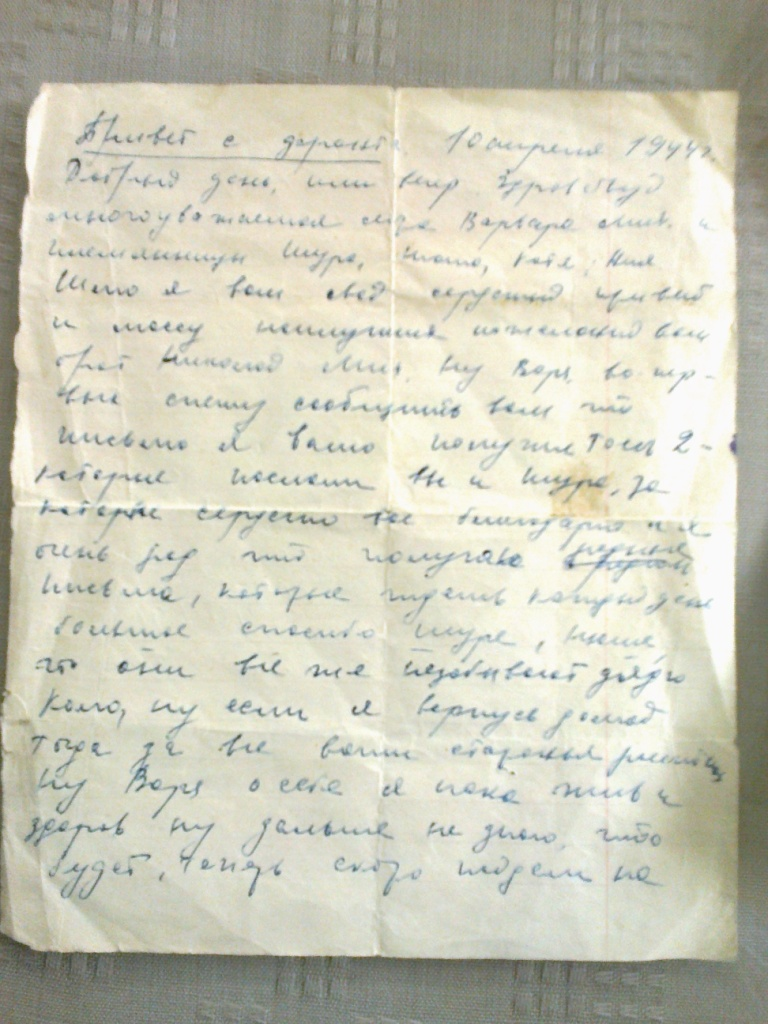 Привет с дороги. 10 апреля 1944 г.
Добрый день, или вечер Здравствуй
многоуважаемая Варвара Мих. и
племянницы Шура, Катя, Нюя
Шлю я вам свой сердечный привет
и массу наилучших пожеланий вам
брат Николай Мих. ну Варя, во пер-
вых спешу сообщить вам что
письмо я ваше получил 2-
которые послали вы и Шура, за
которые сердечно вас благодарю и я
очень рад что получаю родные
письма, которые каждый день
большое спасибо Шуре, Нюше,
что они всё же незабывают дядю
Колю, ну если я вернусь домой
тогда за все ваши старанья
ну Варя о себе я пока жив и
здоров ну дальше не знаю, что
будет, теперь скоро пойдем на